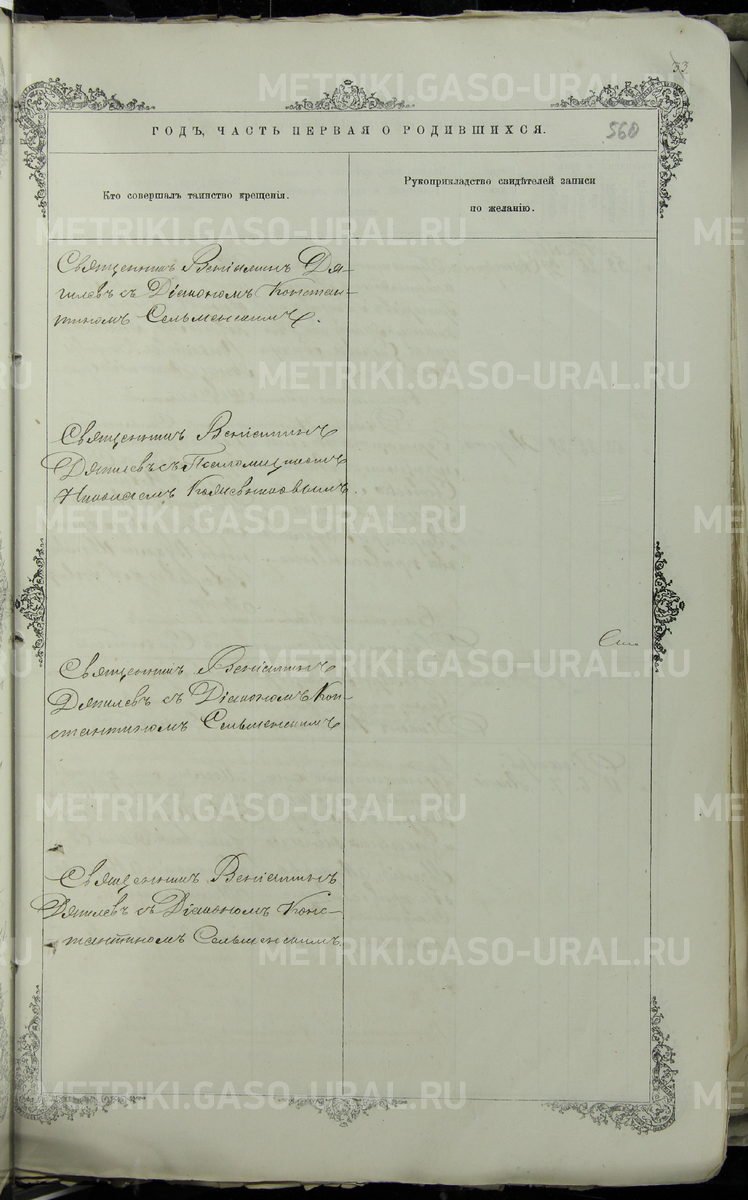 33
ГОДЪ, ЧАСТЬ ПЕРВАЯ О РОДИВШИХСЯ.
560
Кто совершалъ таинство крещенія.
Рукоприкладство свидѣтелей записи
по желанію.
Священникъ Веніаминъ Дя-
гилевъ съ Діакономъ Констан-
тиномъ Сельменскимъ.
Священникъ Веніаминъ
Дягилевъ съ Псаломщикомъ
Николаемъ
Священникъ Веніаминъ
Дягилевъ съ Діакономъ Кон-
стантиномъ Сельменскимъ
Священникъ Веніаминъ
Дягилевъ съ Діакономъ Конс-
тантиномъ Сельменскимъ.
METRIKI.GASO-URAL.RU